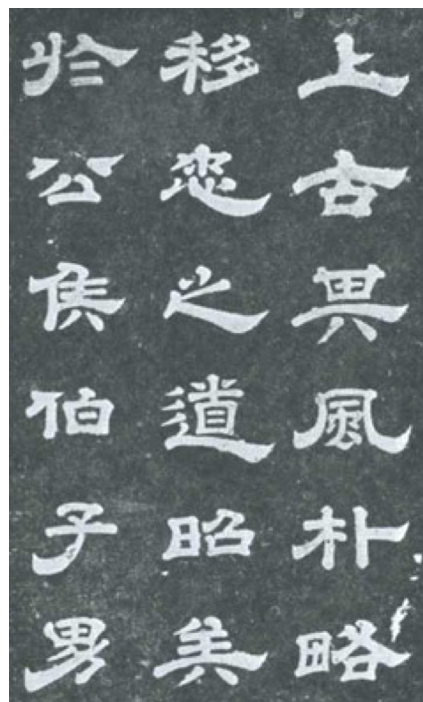 上古其風朴略
移忠之道昭矣
於公侯伯子男